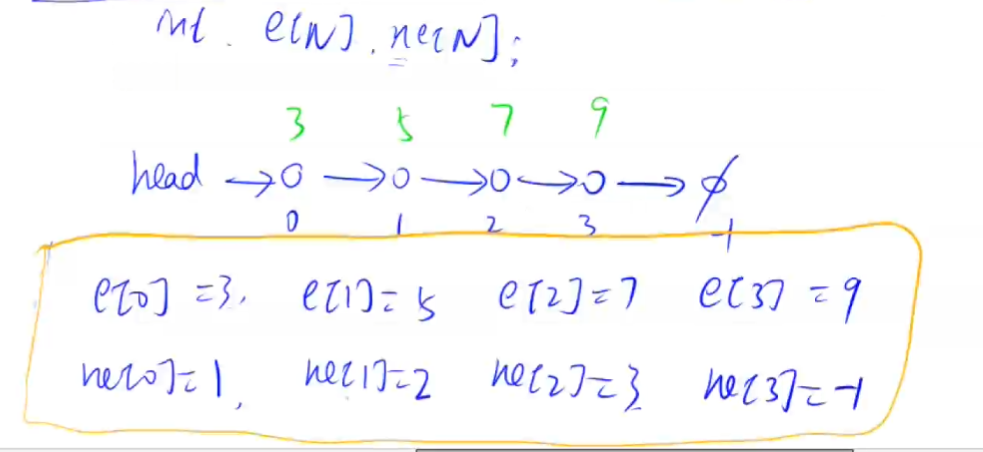 int. e[N], ne[N];
3 5 7 9
head →○ →○ →○ →○ → ∅
0 1 2 3 -1
e[0]=3, e[1]=5 e[2]=7 e[3]=9
ne[0]=1, ne[1]=2 ne[2]=3 ne[3]=-1